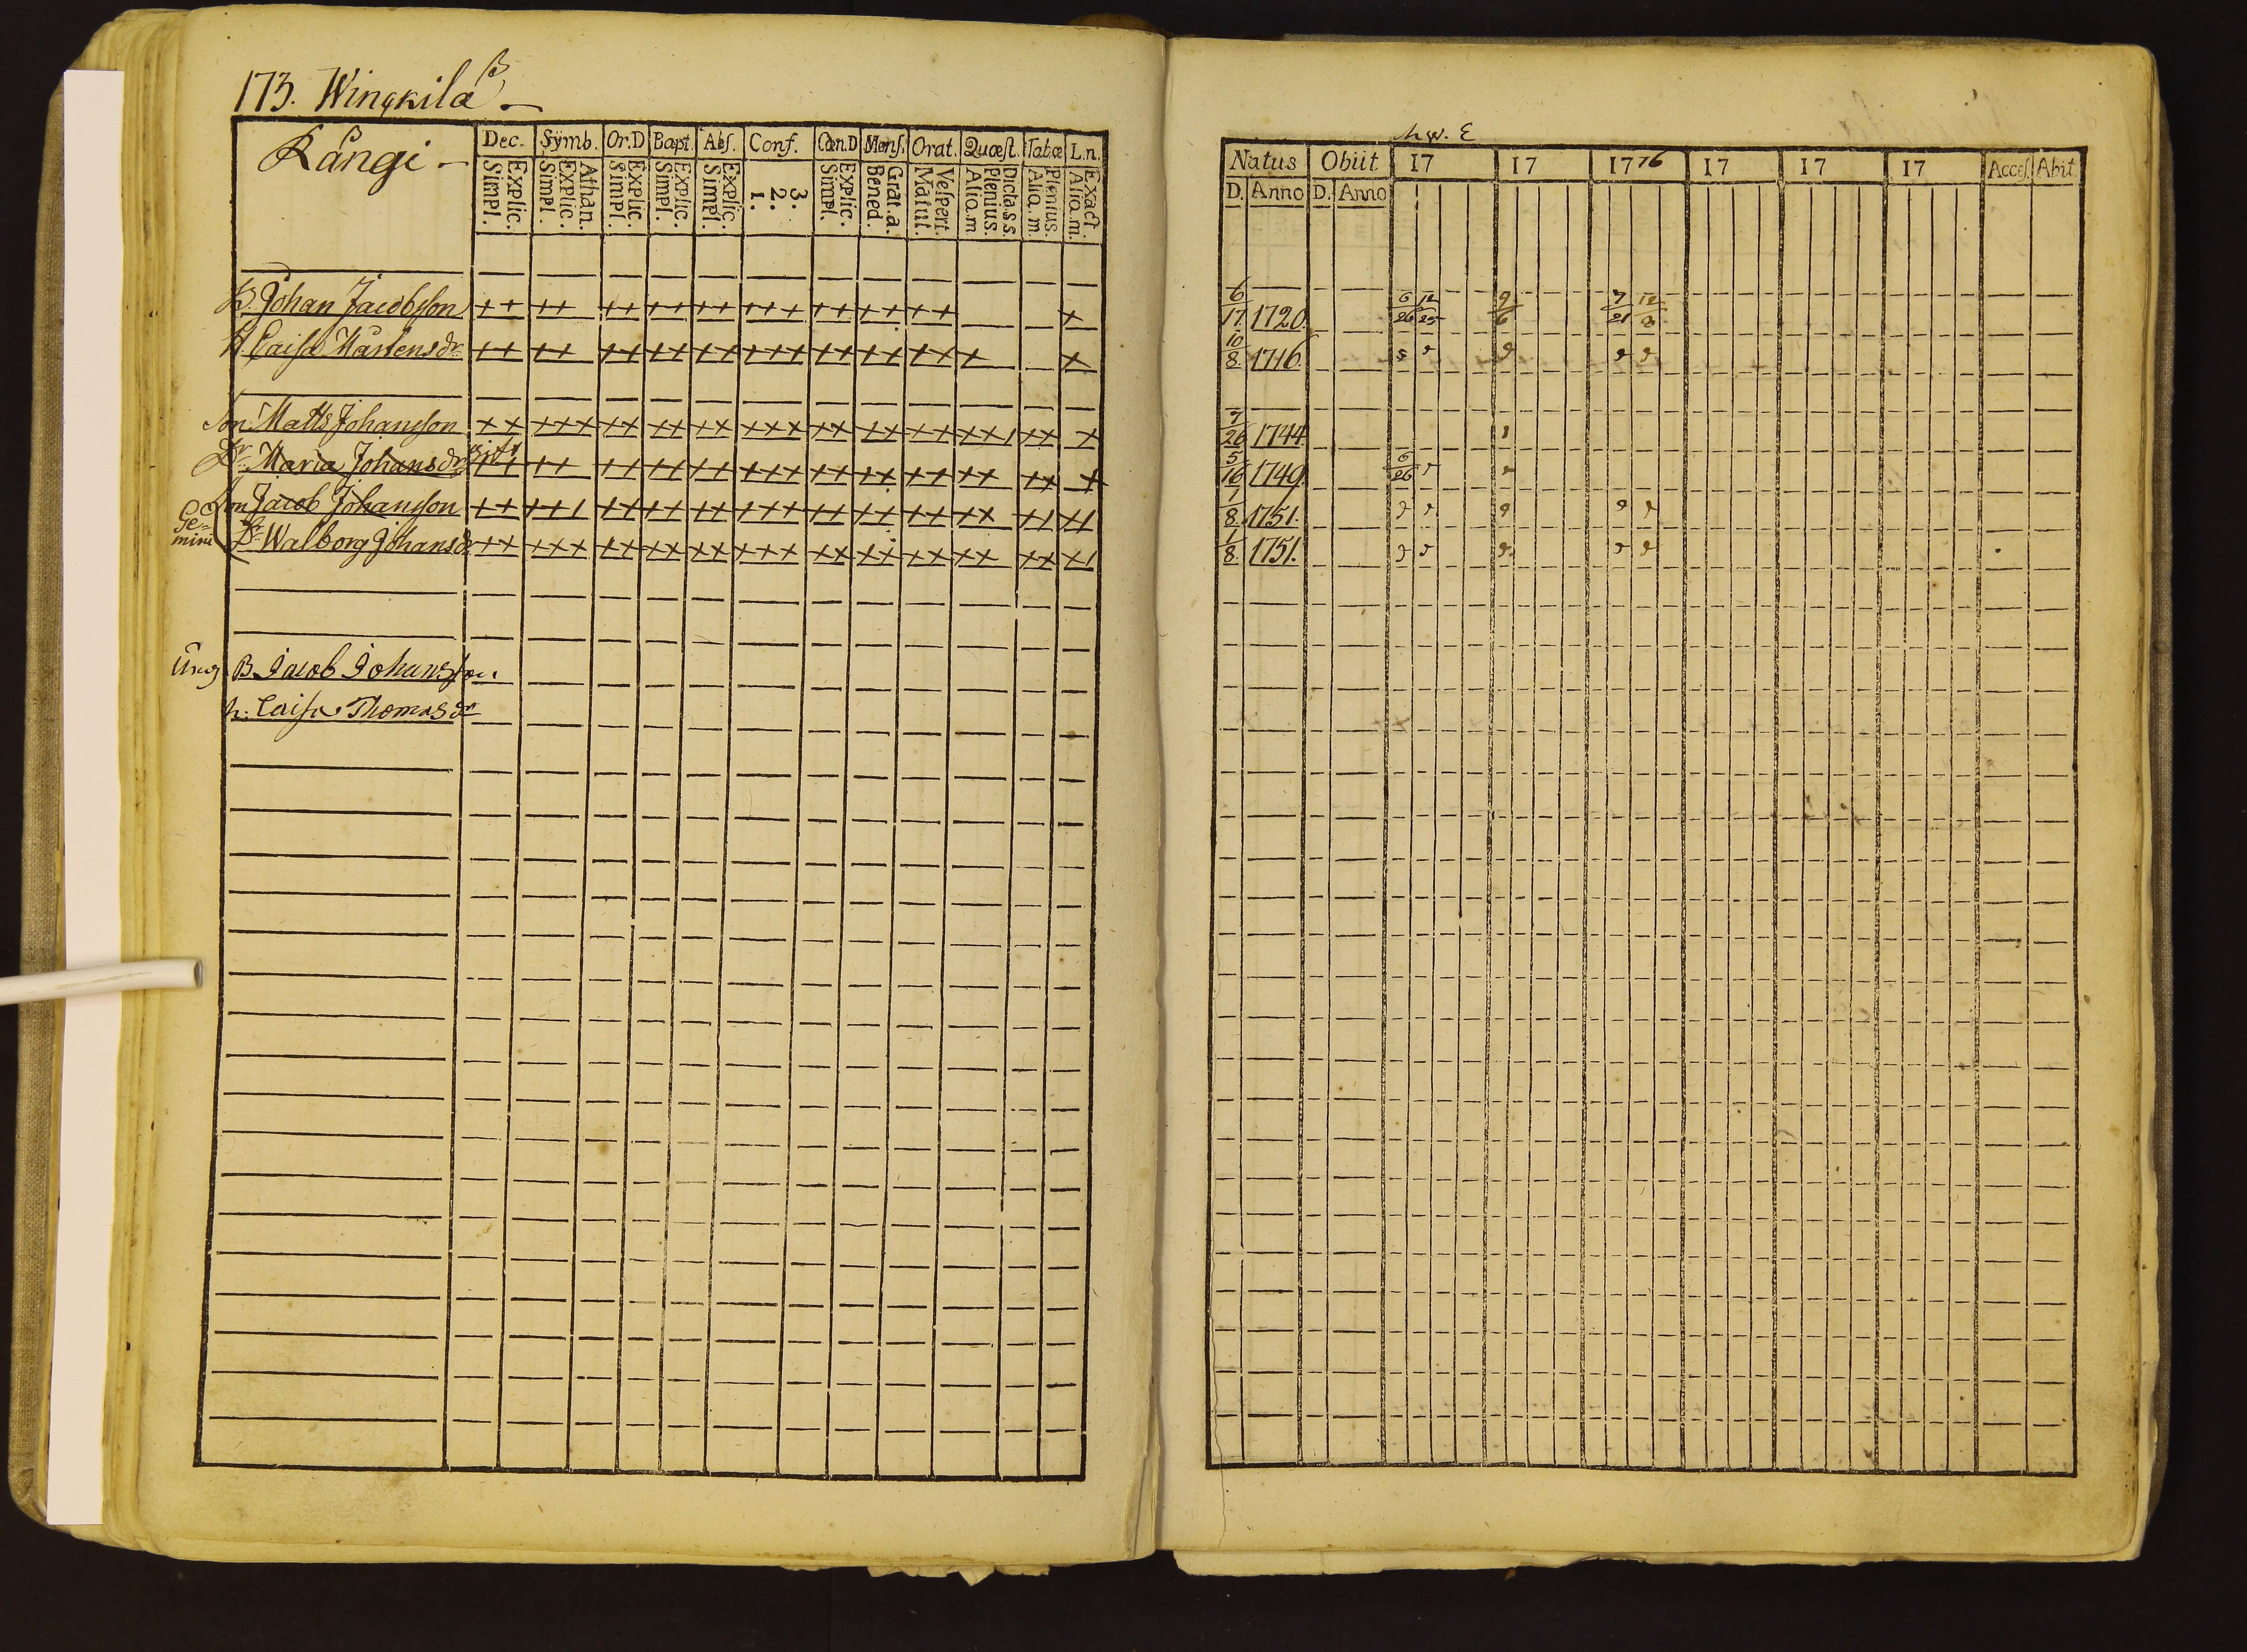 173. Wingkila
Rångi
Dec. Symb. Or.D Bapt. Abs. Conf. Cœn.D Mens. Orat. Quæst. Tabœ L.n.
Explic. Simpl. Athan. Explic. Simpl. Explic. Simpl. Explic. Simpl. Explic. Simpl. 3. 2. 1. Explic. Simpl. Grat.a. Bened. Vespert. Matut. Dicta s.s. Plenius. Aliq.m Plenius. Aliq.m. Exact. Aliq.m.
B. Johan Jacobsson ++ ++ ++ ++ ++ +++ ++ ++ ++ +
H. Caisa Mårtensdr ++ ++ ++ ++ ++ +++ ++ ++ ++ + +
Son Matts Johansson ++ +++ ++ ++ ++ +++ ++ ++ ++ ++1 ++ +
Dr. Maria Johansdr gift ++ ++ ++ ++ ++ +++ ++ ++ ++ ++ ++ +
Son Jacob Johansson ++ ++1 ++ ++ ++ +++ ++ ++ ++ ++ +1 +1
Ge=
mini
Dr. Walborg Johansdr ++ +++ ++ ++ ++ +++ ++ ++ ++ ++ ++ +1
Ung B. Jacob Johansson.
h. Caisa Thomasdr
Natus Obiit 17 17 1776 17 17 17 Acces. Abit.
D. Anno D. Anno
6/17 1720. 6/26 12/25 9/6 7/21 12/8
10/8. 1716.
7/26 1744.
5/16 1749. 6/26
1/8. 1751.
1/8. 1751.